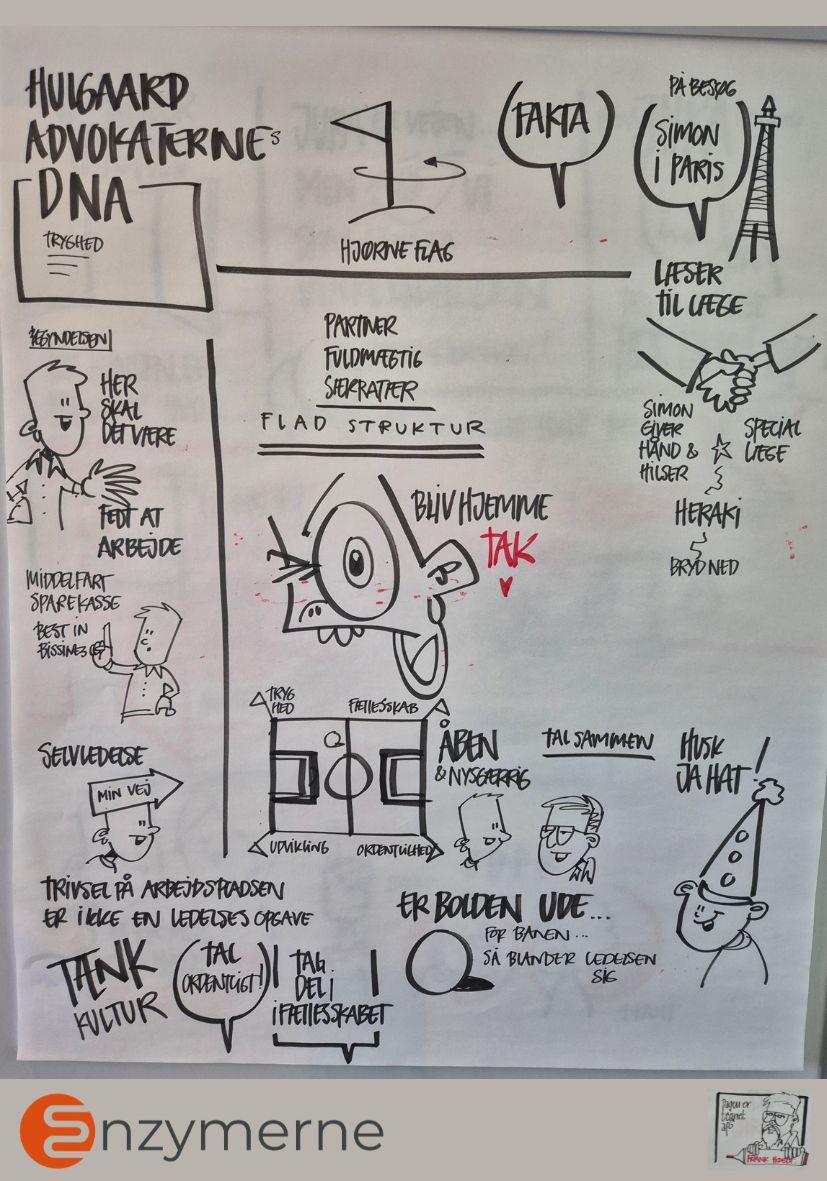 HULGAARD
ADVOKATERNEs
DNA
TRYGHED
HJØRNEFLAG
FAKTA
PÅ BESØG
SIMON
I PARIS
LÆSER
TIL LÆGE
SIMON
GIVER
HÅND &
HILSER
SPECIAL
LÆGE
HERAKI
BRYD NED
PARTNER
FULDMÆGTIG
SÆKRATÆR
FLAD STRUKTUR
BEGYNDELSEN
HER
SKAL
DET VÆRE
FEDT AT
ARBEJDE
BLIV HJEMME
TAK
MIDDELFART
SPAREKASSE
BEST IN
TRYG
HED
FÆLLESSKAB
UDVIKLING
ORDENTLIGHED
ÅBEN
& NYSGÆRRIG
TAL SAMMEN
HUSK
JA HAT!
SELVLEDELSE
MIN VEJ
TRIVSEL PÅ ARBEJDSPLADSEN
ER IKKE EN LEDELSES OPGAVE
TÆNK
KULTUR
TAL
ORDENTLIGT!
TAG
DEL i
i FÆLLESSKABET
ER BOLDEN UDE...
FOR BANEN...
SÅ BLANDER LEDELSEN
SIG
enzymerne
Dagen er
tegnet
af: